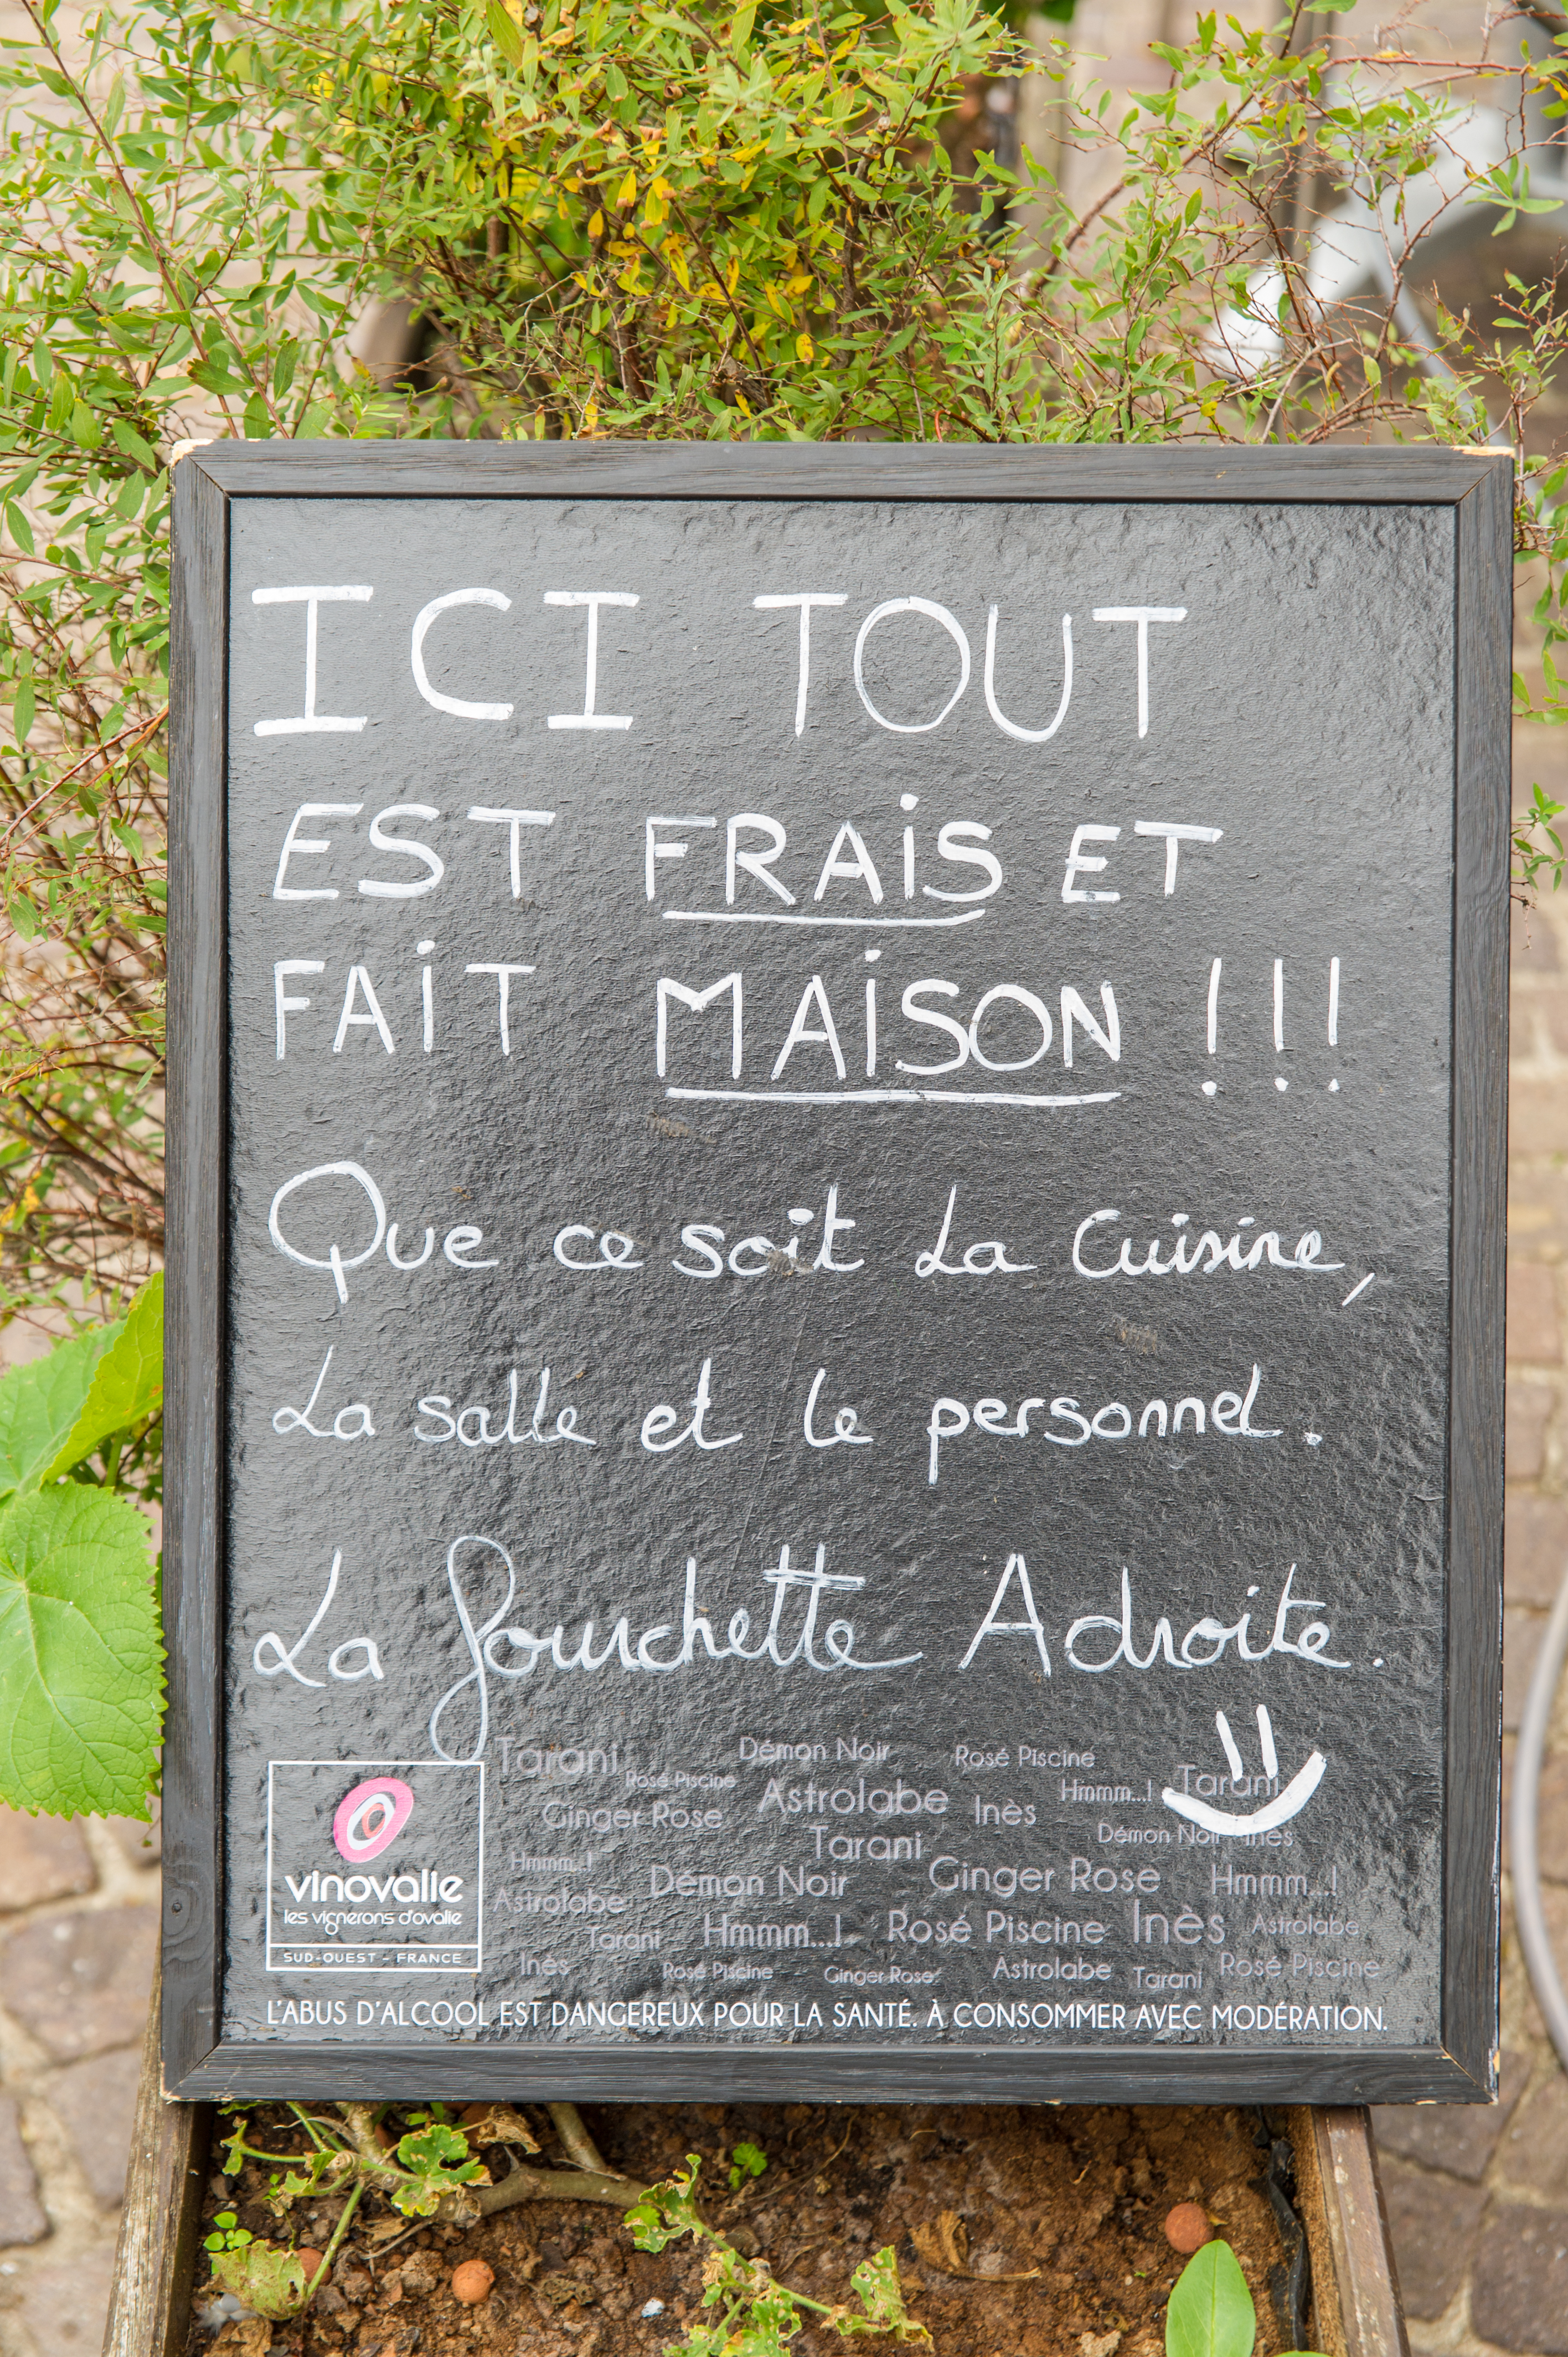 ICI TOUT
EST FRAiS ET
FAiT MAiSON !!!
Que ce soit La Cuisine,
La salle et le personnel.
La fourchette Adroite.
Tarani Démon Noir Rosé Piscine
Rosé Piscine Astrolabe Hmmm...! Tarani
Ginger Rose Inès
Tarani Démon Noir Inès
Hmmm...! Démon Noir Ginger Rose Hmmm...!
Astrolabe Hmmm...! Rosé Piscine Inès Astrolabe
Tarani
Inès Rosé Piscine Ginger Rose Astrolabe Tarani Rosé Piscine
vinovalie
les vignerons d'ovalie
SUD-OUEST - FRANCE
L'ABUS D'ALCOOL EST DANGEREUX POUR LA SANTÉ. À CONSOMMER AVEC MODÉRATION.